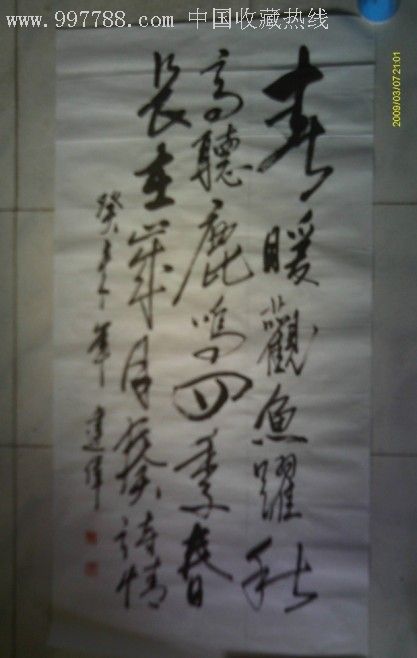 www.997788.com 中国收藏热线
2009/03/07 21:01
春暖觀魚躍秋
高聽鹿鳴四季春
長在歲月發詩情
癸未年 建